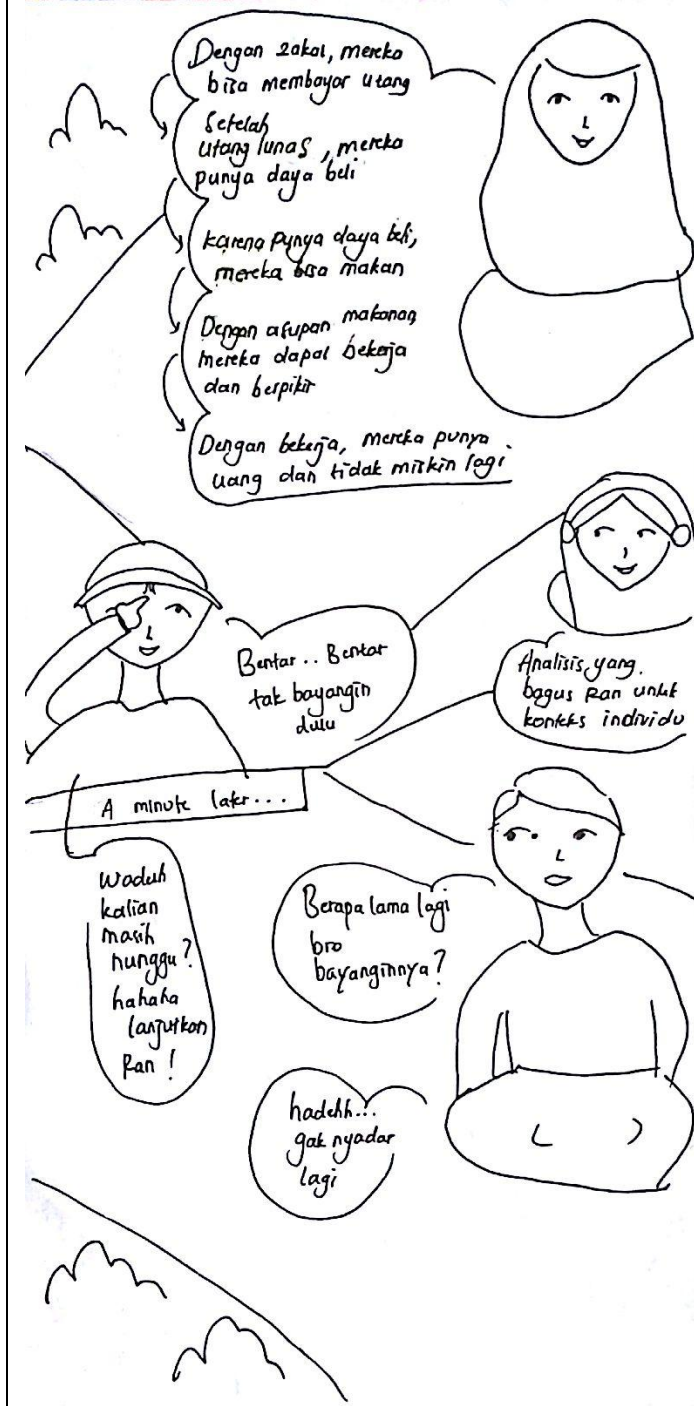 Dengan zakat, mereka
bisa membayar utang
Setelah
utang lunas, mereka
punya daya beli
karena punya daya beli,
mereka bisa makan
Dengan asupan makanan,
mereka dapat bekerja
dan berpikir
Dengan bekerja, mereka punya
uang dan tidak miskin lagi
Bentar.. Bentar
tak bayangin
dulu
Analisis yang
bagus Ran untuk
konteks individu
A minute later...
Waduh
kalian
masih
nunggu?
hahaha
lanjutkan
Ran!
Berapa lama lagi
bro
bayanginnya?
hadehh...
gak nyadar
lagi